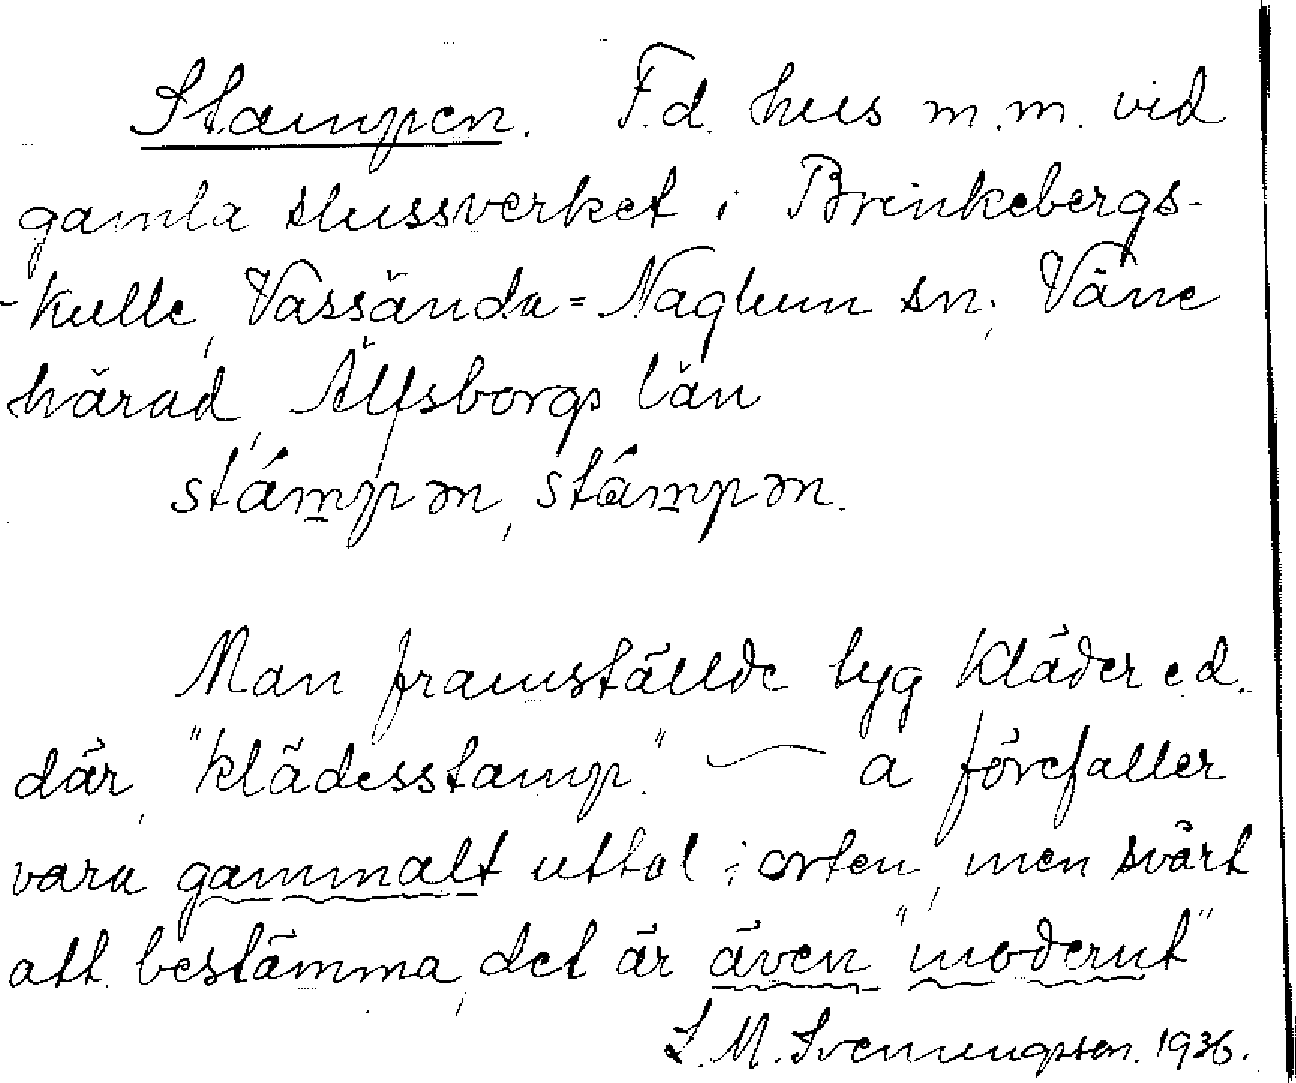 Stampen. F.d. hus m.m. vid
gamla slussverket i Brinkebergs-
-kulle, Vassända=Naglum sn; Väne
härad, Älfsborgs län
stámpən, stámpən.
Man framställde tyg kläder e.d.
där, "klädesstamp." — a förefaller
vara gammalt uttal i orten, men svårt
att bestämma, det är även "modernt"
S. M. Svenungsson. 1936.